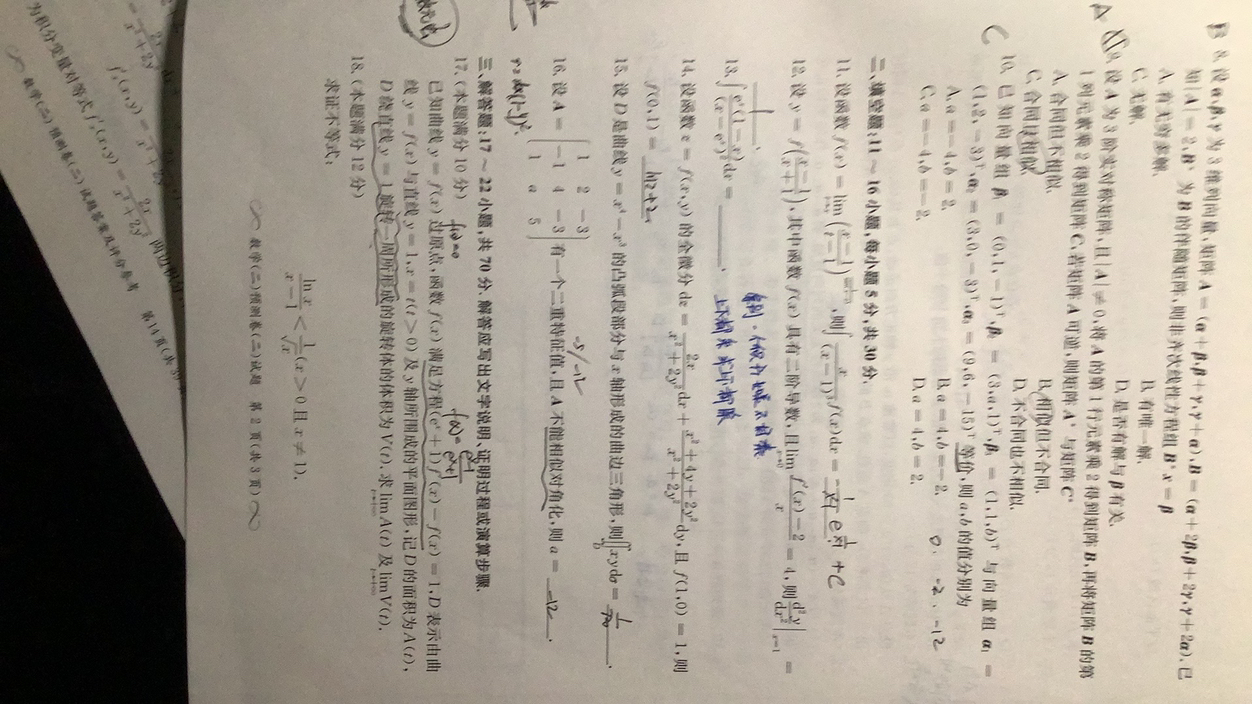 B 8. 设 α,β,γ 为 3 维列向量,矩阵 A = (α+β,β+γ,γ+α),B = (α+2β,β+2γ,γ+2α).已
知|A| = 2,B* 为 B 的伴随矩阵,则非齐次线性方程组 B*x = β
A. 有无穷多解. B. 有唯一解.
C. 无解. D. 是否有解与 β 有关.
A 9. 设 A 为 3 阶实对称矩阵,且|A| ≠ 0,将 A 的第 1 行元素乘 2 得到矩阵 B,再将矩阵 B 的第
1 列元素乘 2 得到矩阵 C,若矩阵 A 可逆,则矩阵 A* 与矩阵 C*
A. 合同但不相似. B. 相似但不合同.
C. 合同且相似. D. 不合同也不相似.
C 10. 已知向量组 β₁ = (0,1,-1)ᵀ,β₂ = (3,a,1)ᵀ,β₃ = (1,1,b)ᵀ 与向量组 α₁ =
(1,2,-3)ᵀ,α₂ = (3,0,-3)ᵀ,α₃ = (9,6,-15)ᵀ 等价,则 a,b 的值分别为
A. a = -4,b = 2. B. a = 4,b = -2. 0. -2. -12
C. a = -4,b = -2. D. a = 4,b = 2.
二、填空题:11 ~ 16 小题,每小题 5 分,共 30 分.
11. 设函数 f(x) = lim ,则∫ x/(x-1)³ f(x)dx = +C
12. 设 y = f((x-1)/(x+1)),其中函数 f(x) 具有二阶导数,且 lim (f'(x)-2)/x = 4,则 d²y/dx²|x=1 =
.
13. ∫ eˣ(1-x)/(x-eˣ)² dx = .
14. 设函数 z = f(x,y) 的全微分 dz = 2x/(x²+2y²) dx + (x²+4y+2y²)/(x²+2y²) dy,且 f(1,0) = 1,则
f(0,1) = ln2+2 .
15. 设 D 是曲线 y = x⁴-x³ 的凸弧段部分与 x 轴形成的曲边三角形,则∬xydσ = .
-5/-12
16. 设 A = [1 2 -3; -1 4 -3; 1 a 5] 有一个二重特征值,且 A 不能相似对角化,则 a = -12 .
三、解答题:17 ~ 22 小题,共 70 分. 解答应写出文字说明、证明过程或演算步骤.
17. (本题满分 10 分) f(0)=0 f(x)=
已知曲线 y = f(x) 过原点,函数 f(x) 满足方程(eˣ+1)f'(x)-f(x) = 1,D 表示由曲
线 y = f(x) 与直线 y = 1,x = t(t > 0) 及 y 轴所围成的平面图形,记 D 的面积为 A(t),
D 绕直线 y = 1 旋转一周所形成的旋转体的体积为 V(t),求 lim A(t) 及 lim V(t).
t→+∞ t→+∞
18. (本题满分 12 分)
求证不等式:
ln x/(x-1) < 1/√x (x > 0 且 x ≠ 1).
数学(二)预测卷(二)试题 第 2 页(共 3 页)
为积分变量对等式 f'ₓ(x,y) = 2x/(x²+2y²) 两边积分
数学(二)预测卷(二)试题答案及评分参考 第 14 页